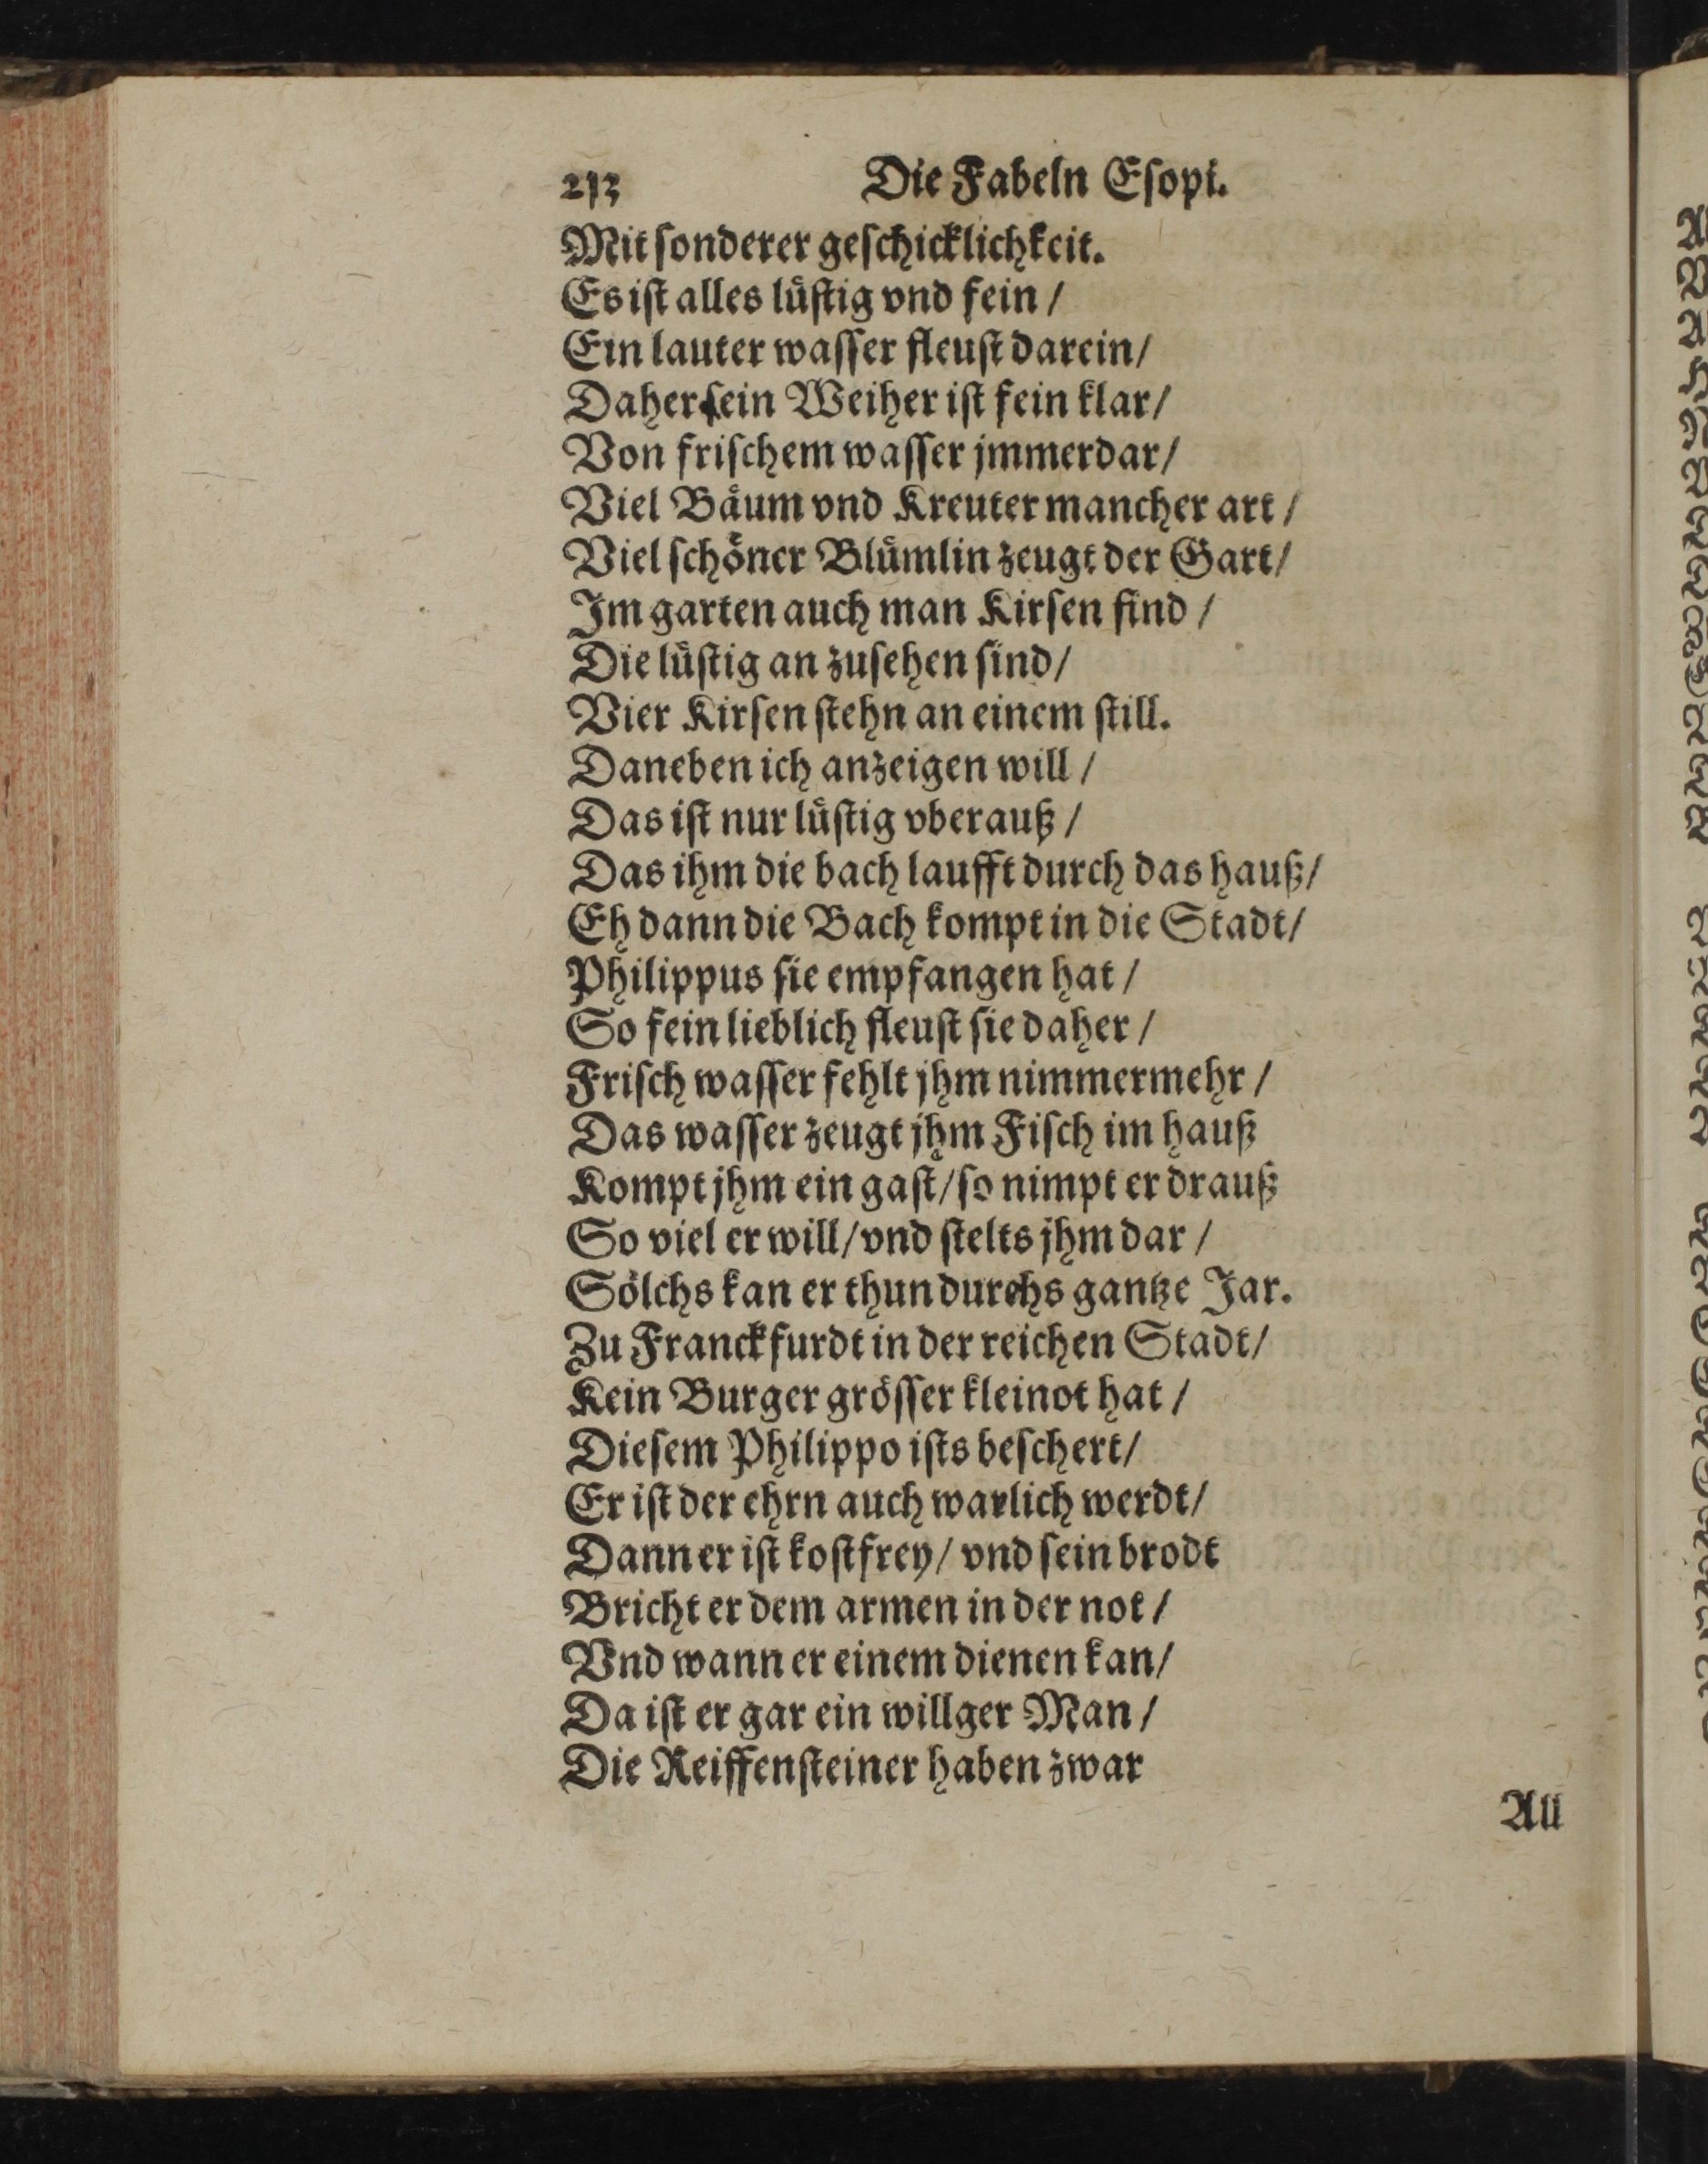 213 Die Fabeln Eſopi.
Mit ſonderer geſchicklichkeit.
Es iſt alles luͤſtig vnd fein /
Ein lauter waſſer fleuſt darein/
Daher ſein Weiher iſt fein klar/
Von friſchem waſſer jmmerdar/
Viel Baͤum vnd Kreuter mancher art /
Viel ſchoͤner Bluͤmlin zeugt der Gart/
Im garten auch man Kirſen find /
Die luͤſtig an zuſehen ſind/
Vier Kirſen ſtehn an einem ſtill.
Daneben ich anzeigen will /
Das iſt nur luͤſtig vberauß /
Das ihm die bach laufft durch das hauß/
Eh dann die Bach kompt in die Stadt/
Philippus ſie empfangen hat /
So fein lieblich fleuſt ſie daher /
Friſch waſſer fehlt jhm nimmermehr /
Das waſſer zeugt jhm Fiſch im hauß
Kompt jhm ein gaſt/ſo nimpt er drauß
So viel er will/vnd ſtelts jhm dar /
Soͤlchs kan er thun durchs gantze Jar.
Zu Franckfurdt in der reichen Stadt/
Kein Burger groͤſſer kleinot hat /
Dieſem Philippo iſts beſchert/
Er iſt der ehrn auch warlich werdt/
Dann er iſt koſtfrey/ vnd ſein brodt
Bricht er dem armen in der not /
Vnd wann er einem dienen kan/
Da iſt er gar ein willger Man /
Die Reiffenſteiner haben zwar
All